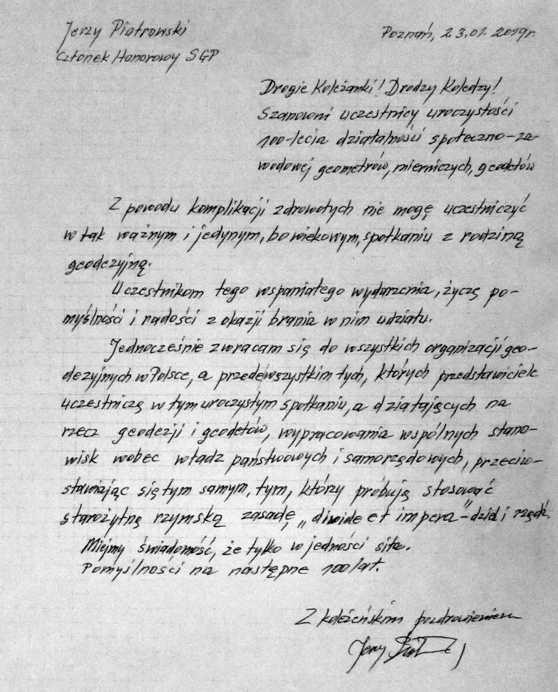 Jerzy Piotrowski
Poznań, 23.01.2019r.
Członek Honorowy SGP
Drogie Koleżanki! Drodzy Koledzy!
Szanowni uczestnicy uroczystości
100-lecia działalności społeczno-za-
wodowej geometrów, mierniczych, geodetów
Z powodu komplikacji zdrowotych nie mogę uczestniczyć
w tak ważnym i jedynym, bo wiekowym, spotkaniu z rodziną
geodezyjną.
Uczestnikom tego wspaniałego wydarzenia, życzę po-
myślności i radości z okazji brania w nim udziału.
Jednocześnie zwracam się do wszystkich organizacji geo-
dezyjnych w Polsce, a przedewszystkim tych, których przedstawiciele
uczestniczą w tym uroczystym spotkaniu, a działających na
rzecz geodezji i geodetów, wypracowania wspólnych stano-
wisk wobec władz państwowych i samorządowych, przeciw-
stawiając się tym samym, tym, który próbują stosować
starożytną rzymską zasadę „divide et impera"-dziel i rządź.
Miejmy świadomość, że tylko w jedności siła.
Pomyślności na następne 100 lat.
Z koleżeńskim pozdrowieniem
Jerzy